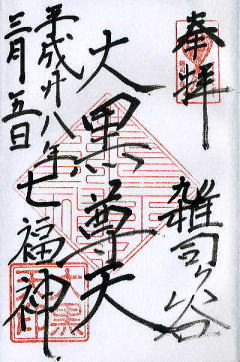 奉拝
雑司ヶ谷
大黒尊天
七福神
平成廿八年
三月五日